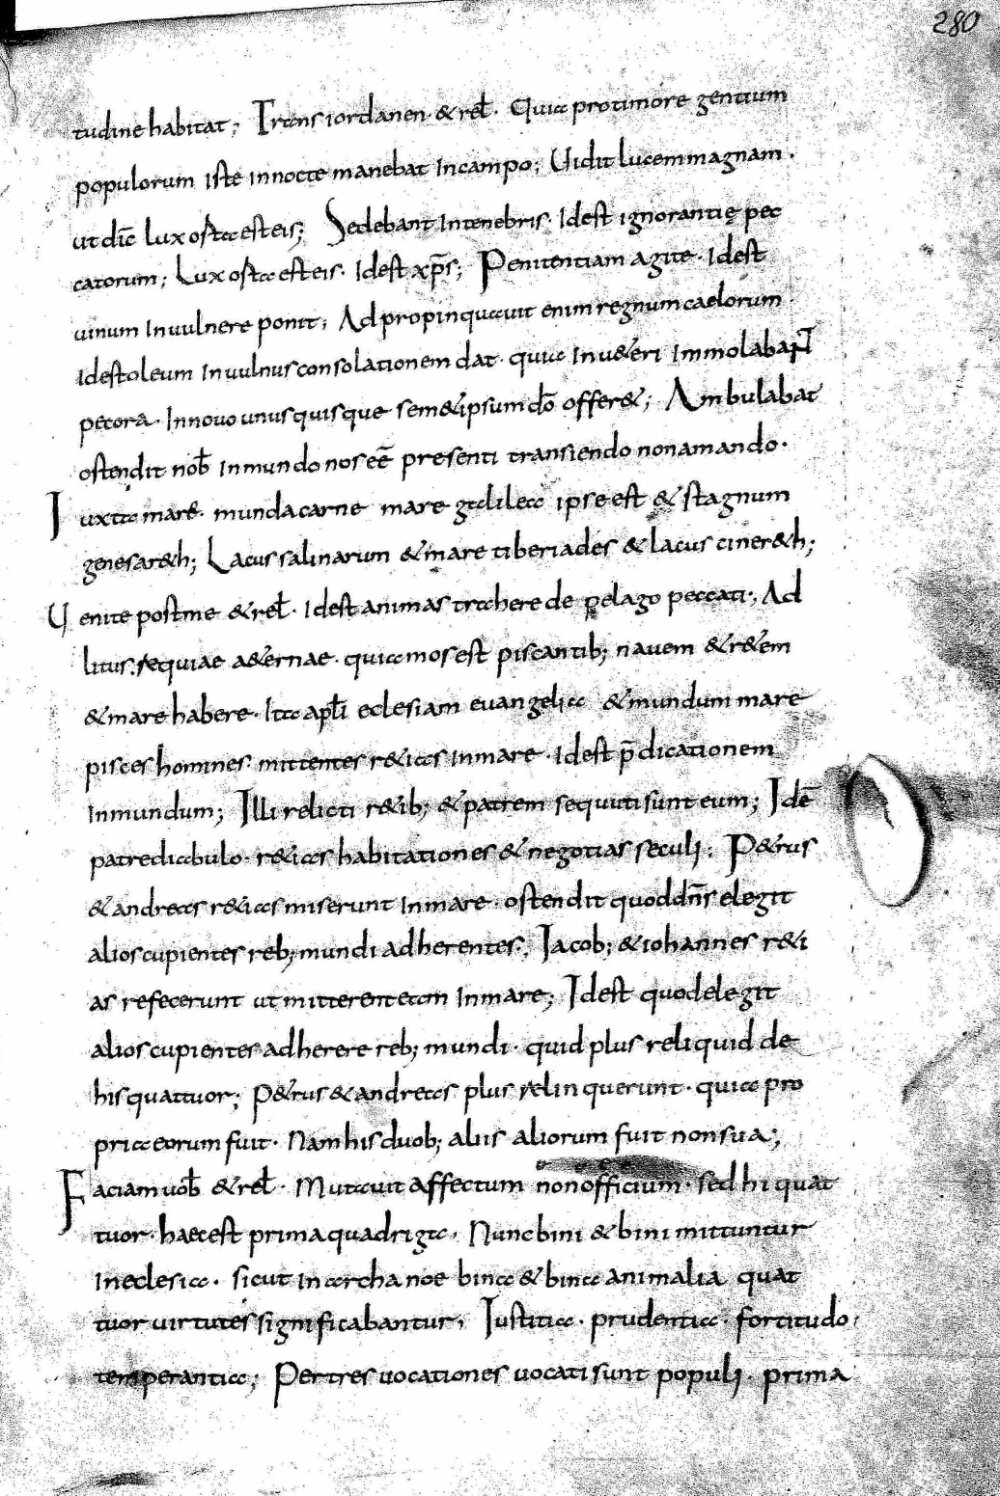 280
tudine habitat; Trans iordanen · & rel̄ · Quia pro timore gentium
populorum iste in nocte manebat in campo; Uidit lucem magnam ·
ut dic̄ lux osta est eis; Sedebant in tenebris · Idest ignorantię pec
catorum; Lux osta est eis · Idest xp̄s; Penitentiam agite · Idest
uinum in uulnere ponit; Adpropinquauit enim regnum caelorum
Idest oleum in uulnus consolationem dat · quia in u&eri immolabant
pecora · In nouo unusquisque sem&ipsum dō offer&; Ambulabat
ostendit nob̄ in mundo nos eē presenti transiendo non amando ·
Iuxta mare · munda carne mare galilea ipse est & stagnum
genesar&h; Lacus salinarum & mare tiberiades & lacus ciner&h;
Uenite post me & rel̄ · Idest animas trahere de pelago peccati; Ad
litus requiae a&ernae · quia mos est piscantib; nauem & r&em
& mare habere · Ita apl̄i eclesiam euangelica & mundum mare
pisces homines mittentes r&ias in mare · Idest p̄dicationem
in mundum; Illi relicti r&ib; & patrem sequuti sunt eum; Idē
patre diabulo · r&ias habitationes & negotias seculi; P&rus
& andreas r&ias miserunt in mare · ostendit quod dn̄s elegit
alios cupientes reb; mundi adherentes; Iacob; & iohannes r&i
as refecerunt ut mitterent eam in mare; Idest quod elegit
alios cupientes adherere reb; mundi · quid plus reliquid de
his quattuor; P&rus & andreas plus relinquerunt · quia pro
pria eorum fuit · Nam his duob; aliis aliorum fuit non sua;
Faciam uob̄ & rel̄ · Mutauit affectum non officium · sed hi quat
tuor · haec est prima quadriga · Nunc bini & bini mittuntur
in eclesia · sicut in archa noe bina & bina animalia quat
tuor uirtutes significabantur; Iustitia · prudentia · fortitudo ·
temperantia; Per tres uocationes uocati sunt populi · prima